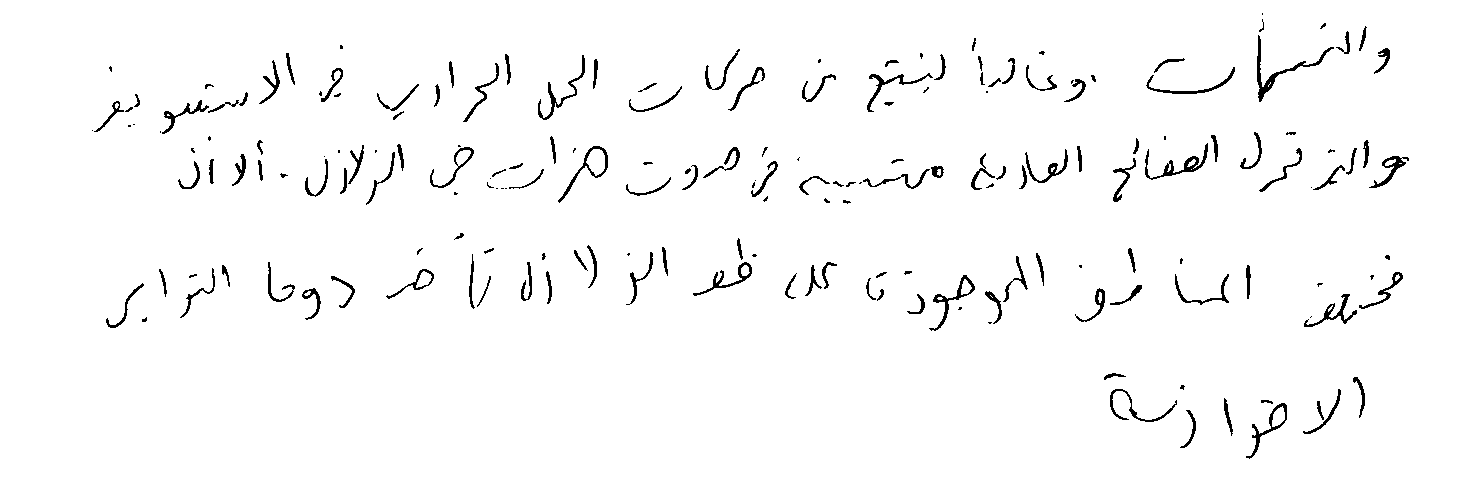 والتسمات . وغالباً لينتج من حركات الحمل الحراري في الاستسو يفر
والتي تحرك الصفائح القارية متسببه في حدوث هزات في الزلازل . ألا أن
مختلف المناطق الموجودة على خط الزلازل تأخذ دوما التدابير
الاحترازية